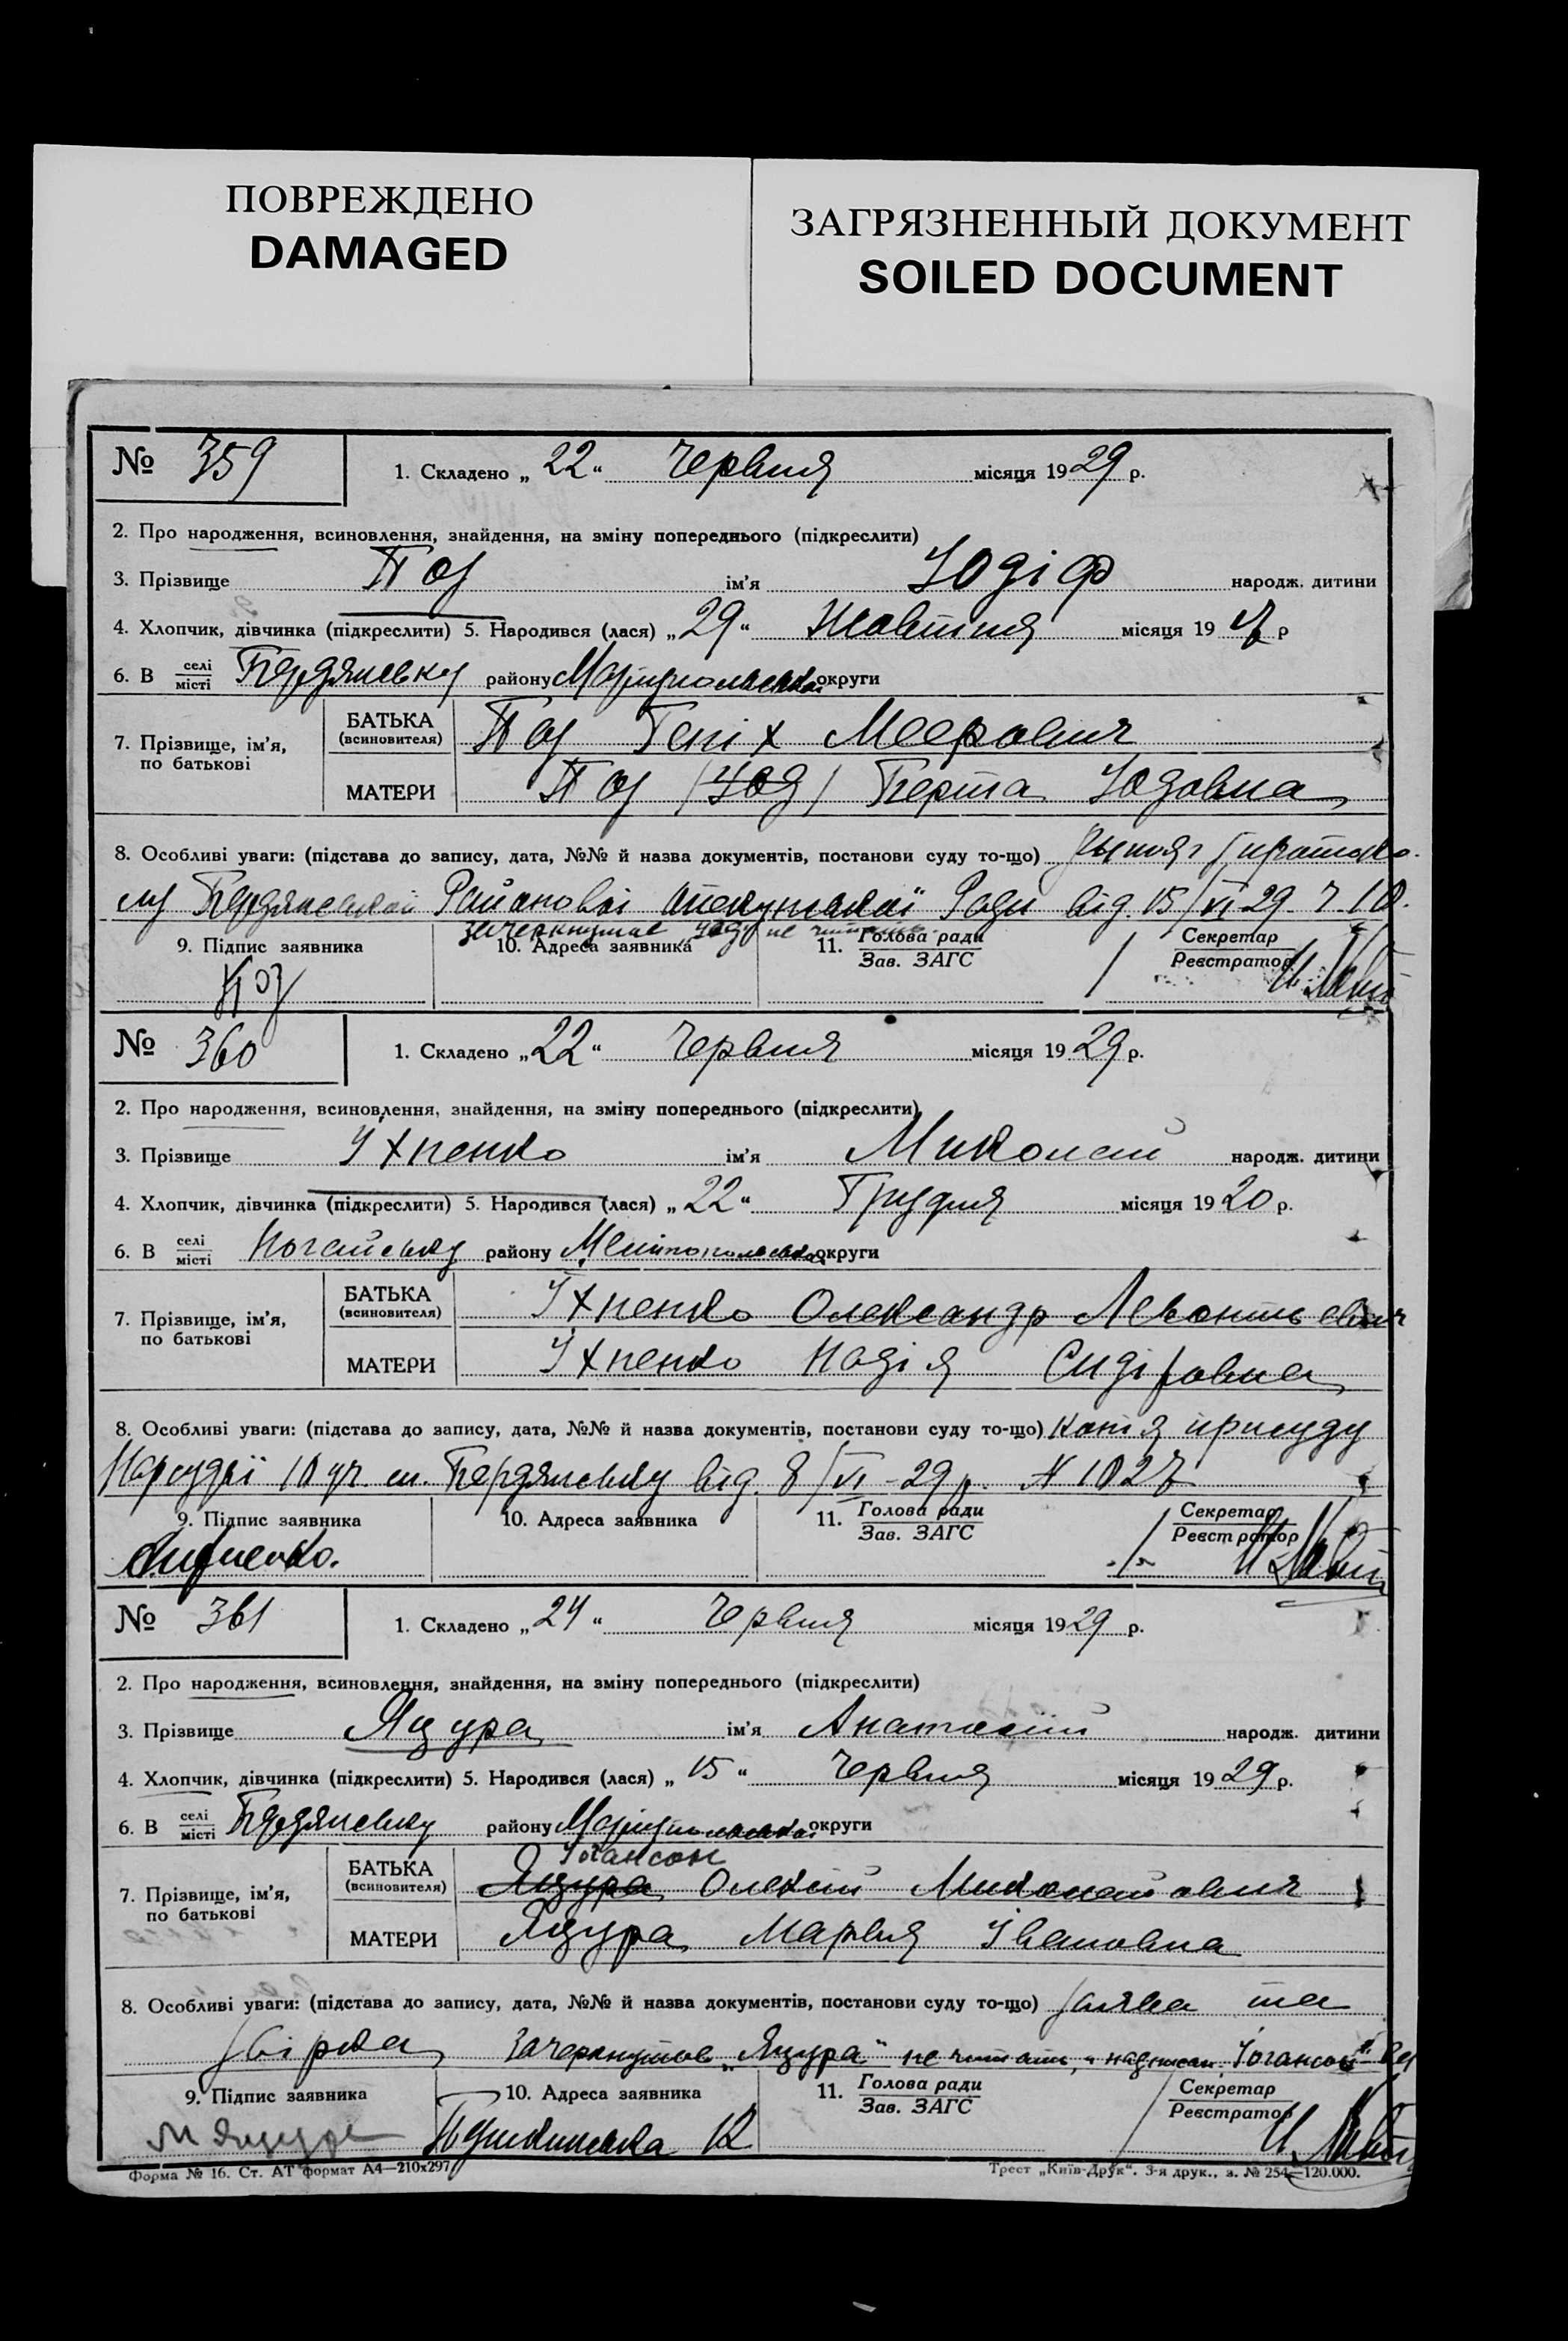 ПОВРЕЖДЕНО
DAMAGED
ЗАГРЯЗНЕННЫЙ ДОКУМЕНТ
SOILED DOCUMENT
№ 359
1. Складено „22“ Червня місяця 1929 р.
2. Про народження, всиновлення, знайдення, на зміну попереднього (підкреслити)
3. Прізвище ім’я народж. дитини
4. Хлопчик, дівчинка (підкреслити) 5. Народився (лася) „29“ Жовтня місяця 19 р
6. В селі місті Бердянську району Маріупольської округи
7. Прізвище, ім’я, по батькові
БАТЬКА (всиновителя) Меерович
МАТЕРИ Берта Юдовна
8. Особливі уваги: (підстава до запису, дата, №№ й назва документів, постанови суду то-що)
Бердянської Районової Опекунської Ради від 15/VI 29
зачеркнутое не читать
9. Підпис заявника
10. Адреса заявника
11. Голова ради Зав. ЗАГС
Секретар Реєстратор
№ 360
1. Складено „22“ Червня місяця 1929 р.
2. Про народження, всиновлення, знайдення, на зміну попереднього (підкреслити)
3. Прізвище Іхненко ім’я Миколай народж. дитини
4. Хлопчик, дівчинка (підкреслити) 5. Народився (лася) „22“ Грудня місяця 1920 р.
6. В селі місті Ногайську району Мелітопольської округи
7. Прізвище, ім’я, по батькові
БАТЬКА (всиновителя) Іхненко Олександр Левонтьевич
МАТЕРИ Іхненко Надія
8. Особливі уваги: (підстава до запису, дата, №№ й назва документів, постанови суду то-що) Копія присуду
Нарсудьї 10 уч. м. Бердянську від 8/VI-29 р. N 1027
9. Підпис заявника
10. Адреса заявника
11. Голова ради Зав. ЗАГС
Секретар Реєстратор
№ 361
1. Складено „24“ Червня місяця 1929 р.
2. Про народження, всиновлення, знайдення, на зміну попереднього (підкреслити)
3. Прізвище Яцура ім’я Анатолій народж. дитини
4. Хлопчик, дівчинка (підкреслити) 5. Народився (лася) „15“ Червня місяця 1929 р.
6. В селі місті Бердянську району Маріупольської округи
Іогансон
7. Прізвище, ім’я, по батькові
БАТЬКА (всиновителя) Яцура Олексій Миколайович
МАТЕРИ Яцура Марья Івановна
8. Особливі уваги: (підстава до запису, дата, №№ й назва документів, постанови суду то-що) Заява та
Звірка Зачеркнутое „Яцура“ не читать, а надписан. „Іогансон“
9. Підпис заявника
М Яцура
10. Адреса заявника
Пушкинська 12
11. Голова ради Зав. ЗАГС
Секретар Реєстратор
Форма № 16. Ст. АТ формат А4—210х297
Трест „Київ-Друк“. 3-я друк., з. № 254—120.000.